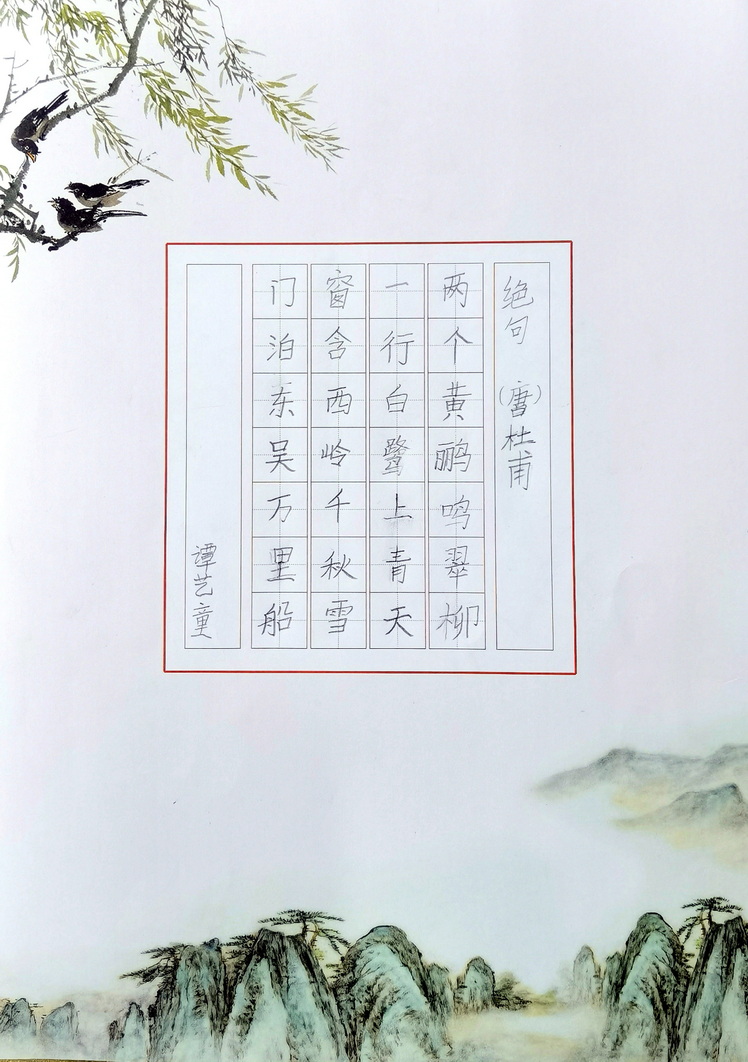 绝句 (唐)杜甫
两个黄鹂鸣翠柳
一行白鹭上青天
窗含西岭千秋雪
门泊东吴万里船
谭艺童